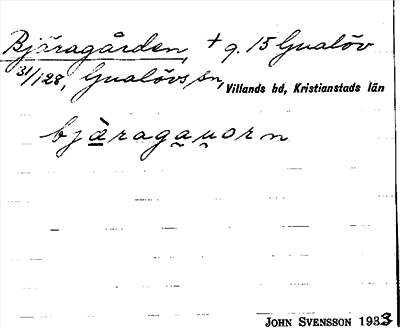 Bjäragården, + g. 15 Gualöv
31/128, Gualövs sn, Villands hd, Kristianstads län
bjàragauorn
JOHN SVENSSON 1933